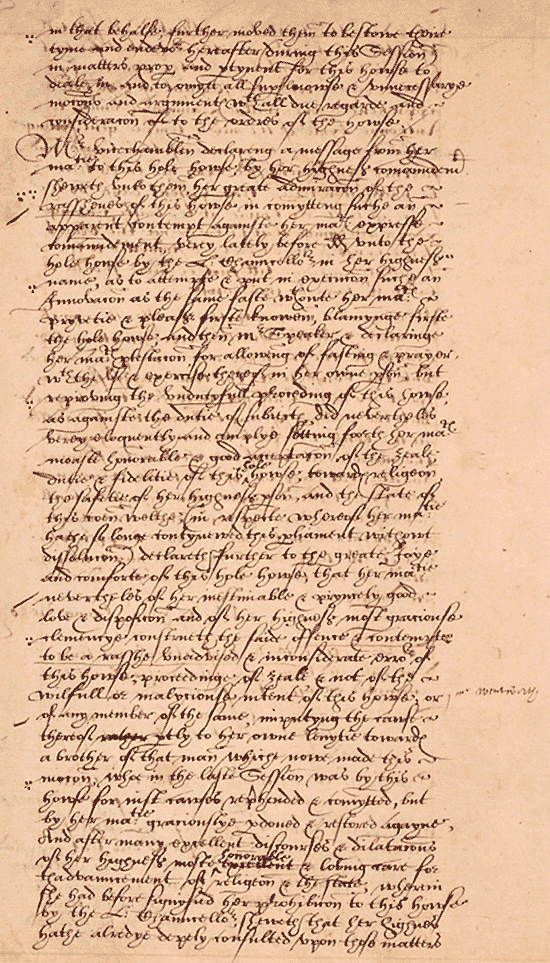 in that behalfe, further moved them to bestowe their
tyme and endevor hereafter during this Session
in matters prop and ptynent for this howse to
deale in and to omytt all supfluouse & unnecessarye
mocons and argument wth all due regarde and
consideracon of to the orders of the howse
Mr vicechamblen declareng a message from her
matie to this hole howse by her highnes comaundemt
sheweth unto them her greate admiracon of the
rasshenes of this howse in comytting suche an
apparent contempt againste her mats expresse
comaundement, very lately before unto the
hole howse by the L. Chauncellor in her highnes
name, as to attempte & put in execucon suche an
Innovacon as the same faste wthoute her mats
privitie & pleasr firste knowen, blamynge firste
the hole howse and then Mr Speaker, & declaringe
her mats ptestacon for allowing of fasting & prayer,
wth the use & exercise thereof in her owne pson, but
reproving the undutyfull proceding of this howse
as againste the dutie of subiects did nevertheles
verey eloquently and amplye setting foorth her mats
moaste honorable & good acceptacon of the zeale
dutie & fidelitie of this hole howse towards religeon
the safetie of her highnes pson, and the state of
this comen welthe (in respecte whereof her matie
hathe so longe contynewed this parliament without
dissolucon) declareth further to the greate Joye
and comforte of this hole howse, that her matie
nevertheles of her inestimable & pryncely good
love & disposicon and of her highnes most graciouse
clemencye construeth the said offence & contempte
to be a rasshe unadvised & inconsiderate error of
this howse, proceedinge of zeale & not of the
wilfull or malyciouse intent of this howse, or
mr wentworth
of any member of the same, imputyng the cause
thereof rather ptly to her owne lenytie towards
a brother of that man which nowe made this
mocon, whoe in the laste Session was by this
howse for iust causes rephended & comytted, but
by her matie graciouslye pdoned & restored agayne,
And after many excellent discourses & dilatacons
of her highnes moste honorable excellent & loving care for
thadvauncement of religeon & the state, wherein
she had before signyfied her prohibicon to this howse
by the L. Chauncellor, sheweth that her highnes
hathe alredye depely consulted upon thes matters